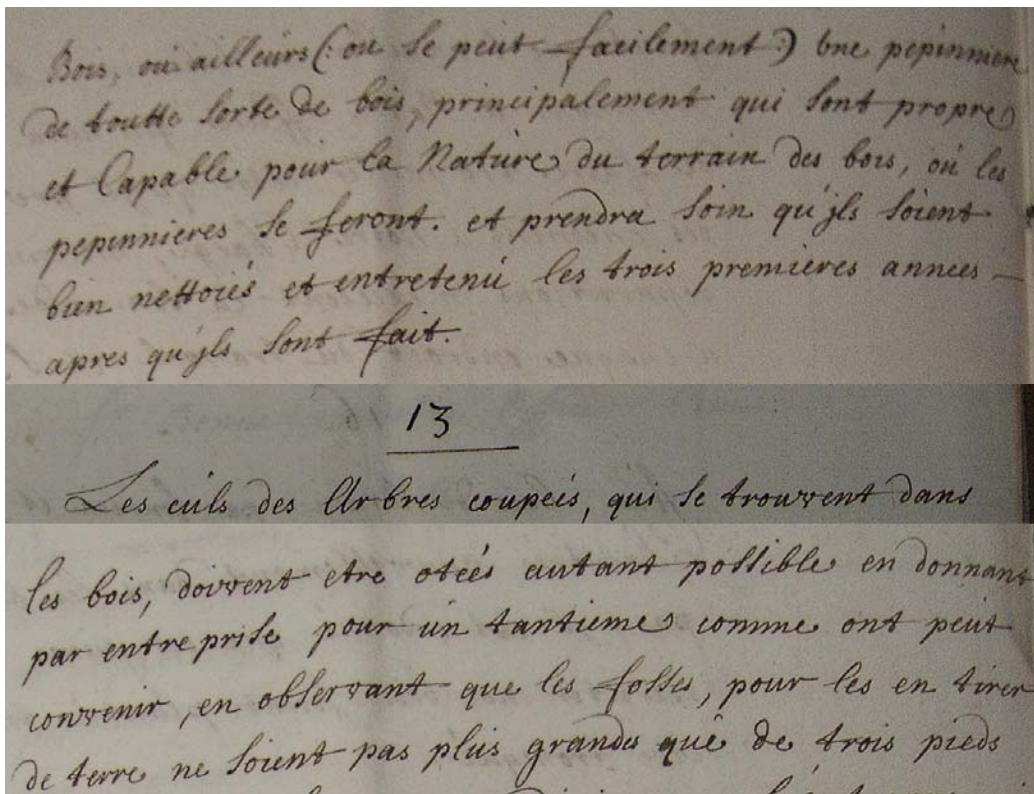 Bois, ou ailleurs (: ou se peut facilement :) une pepinniere
de toutte sorte de bois, principalement qui sont propre
et Capable pour la Nature du terrain des bois, où les
pepinnieres se feront. et prendra soin qu'jls soient
bien nettoiés et entretenú les trois premieres annees
apres qu'jls sont fait.
13
Les culs des Arbres coupeés, qui se trouvent dans
les bois, doivent etre oteés autant possible en donnant
par entreprise pour un tantieme comme ont peut
convenir, en observant que les fosses, pour les en tirer
de terre ne soient pas plus grandes que de trois pieds